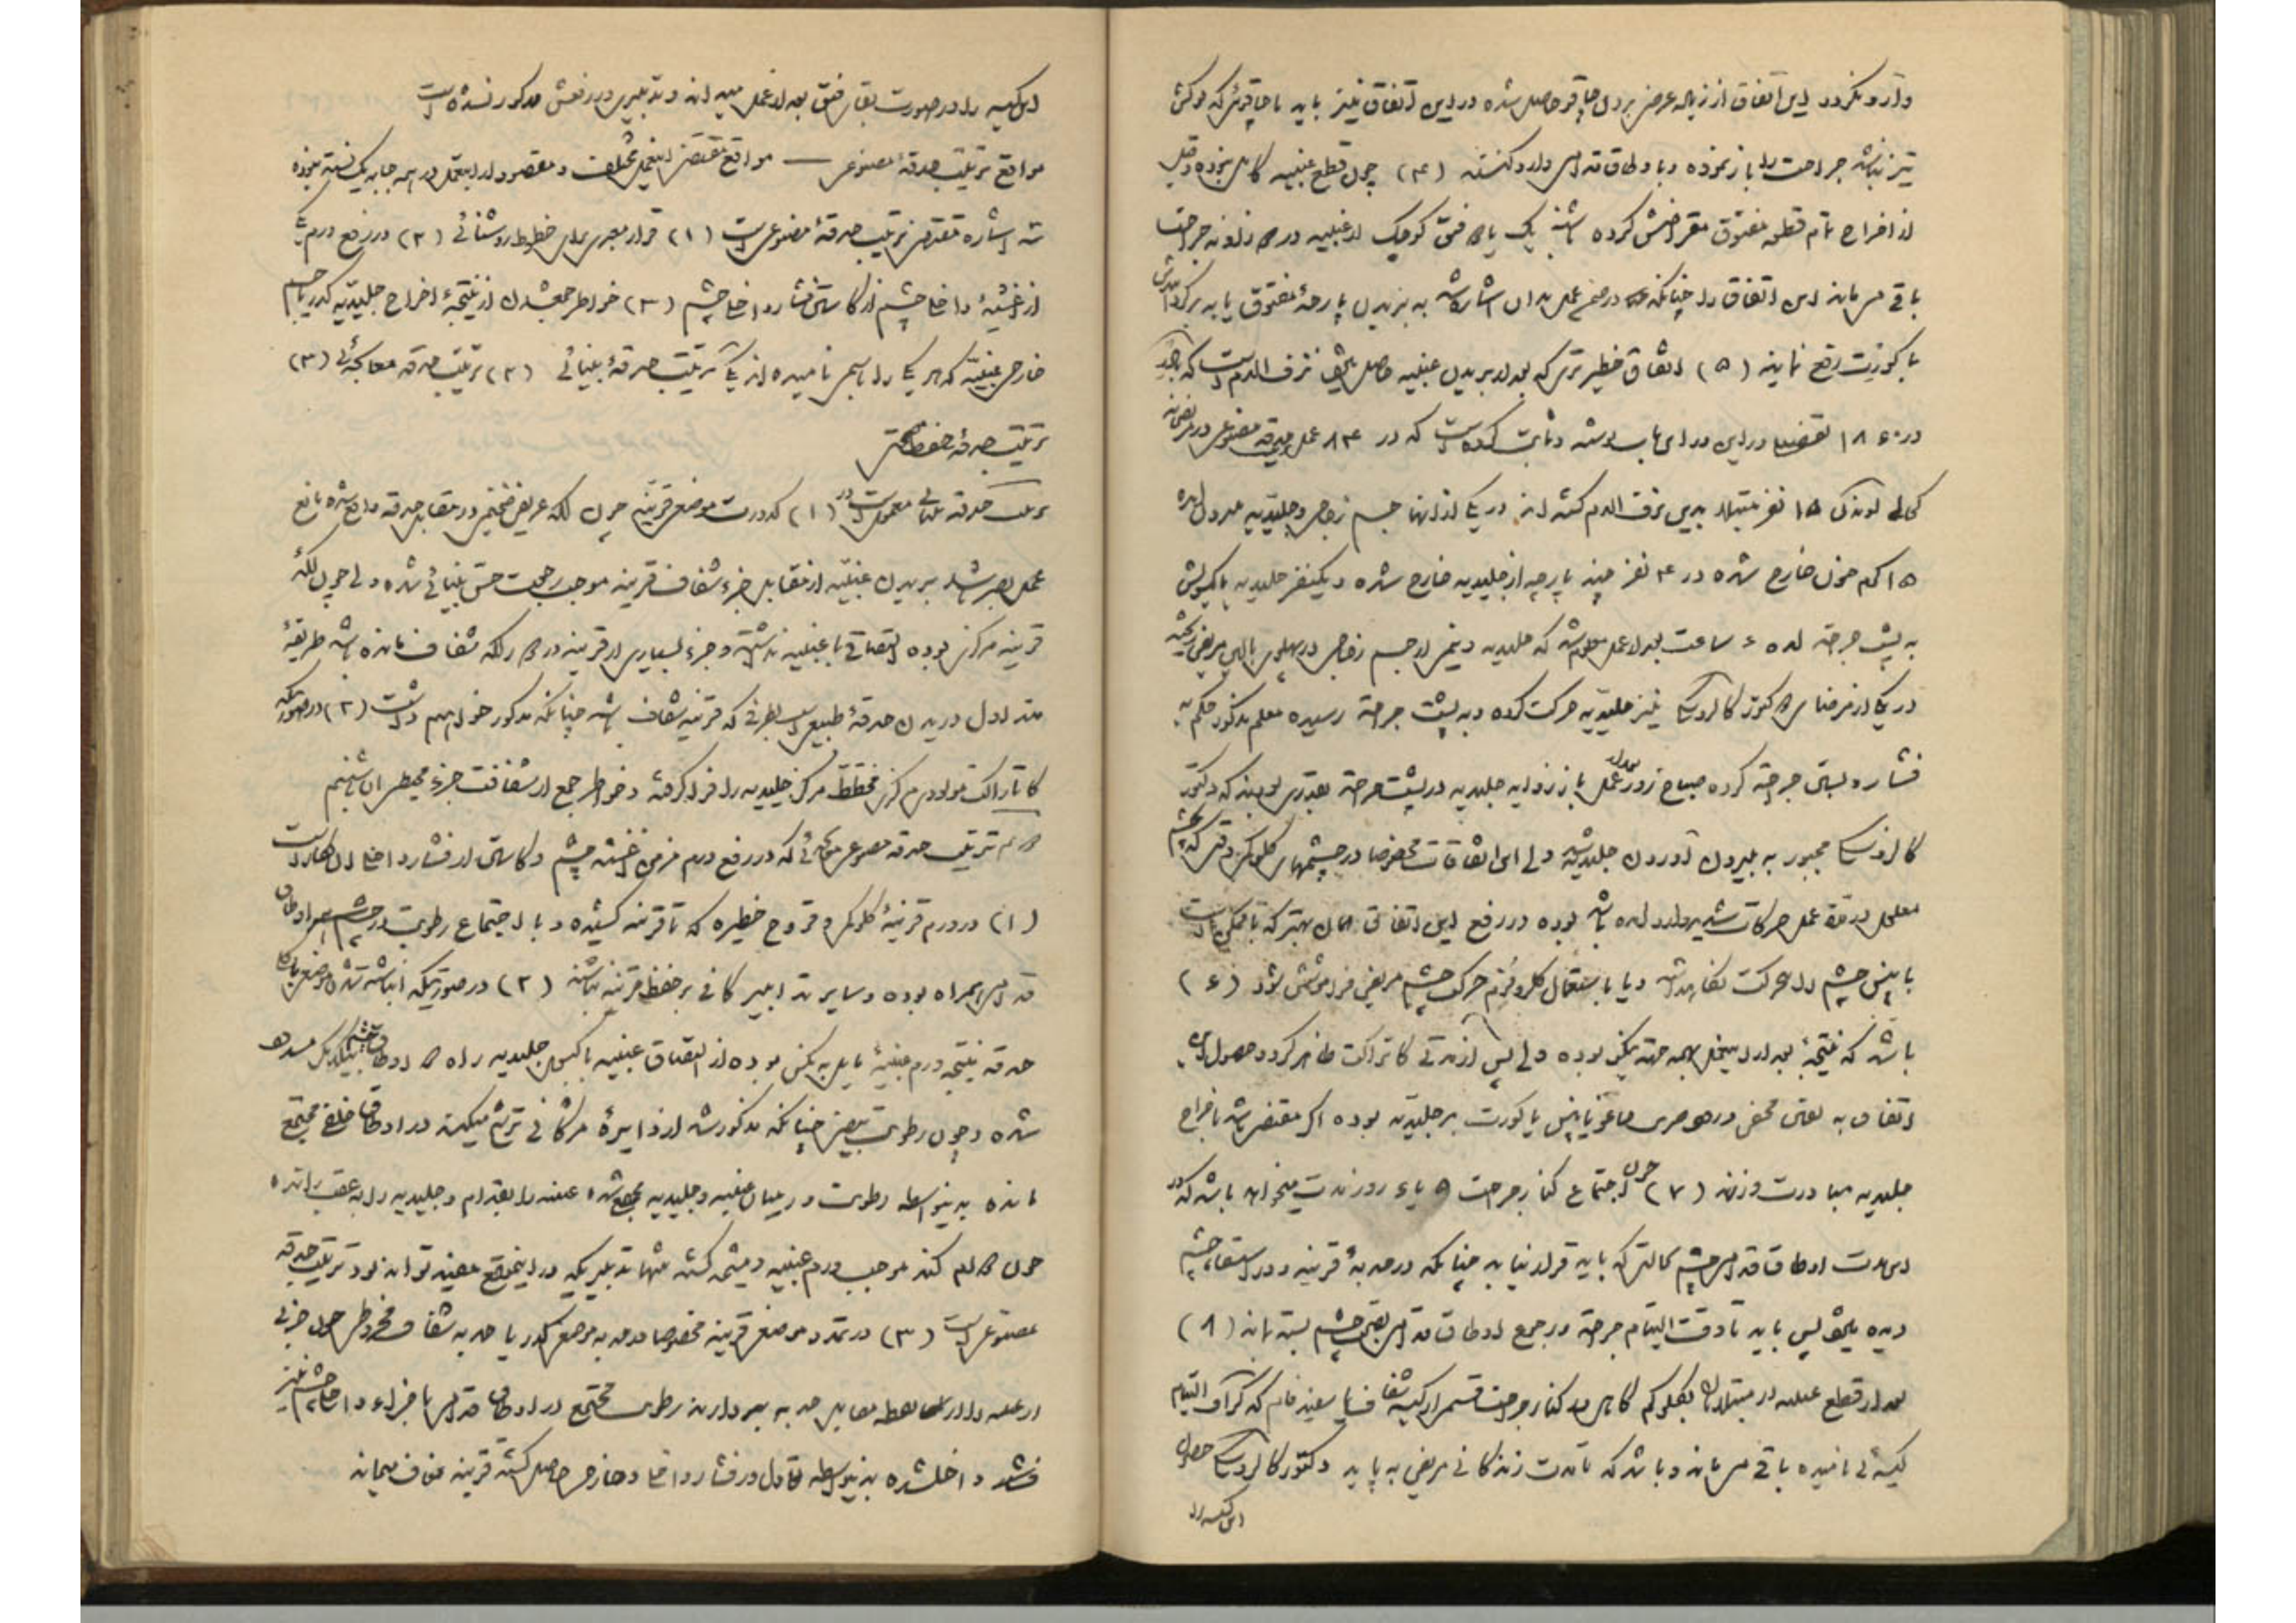 وارد نگردد این اتفاق از زیاله عرض بردن چاقو حاصل شده در این اتفاق نیز باید با چاقوئی که نوکش
تیز نباشد جراحت را باز نموده و با وطاق قدامی وارد کنند (۴) چون قطع عنبیه کامل نبوده و قبل
از اخراج تمام قطعه مفتوق مقراضش کرده باشند یک یا دو فتق کوچک از عنبیه در دو زاویه جراحت
باقی میماند این اتفاق را چنانکه در ضمن عمل بدان اشاره شد به بریدن پارچه مفتوق یا به برگرداندنش
با کورت رفع نمایند (۵) اتفاق خطیرتری که بعد از بریدن عنبیه حاصل نزف الدم است که
در ۱۸۶۰ تفصیلا در این باب نوشته و ثابت کرده است که در ۸۴ عمل حدقه مصنوعی در
۱۵ نفر مبتلا بدین نزف الدم گشته اند در یکی از آنها جسم زجاجی و جلیدیه
۱۵ گرم خون خارج شده در ۴ نفر چند پارچه از جلیدیه خارج شده و یک نفر جلیدیه با کپسولش
به پشت جراحت آمده ۶ ساعت بعد از عمل معلوم شد که جلیدیه و نیمی از جسم زجاجی در پهلوی بالین مریض
در یکی از مرضای دکتور کالزوسکی نیز جلیدیه حرکت کرده و به پشت جراحت رسیده معلم مذکور حکم به
فشار و بستن جراحت کرده صباح روز بعد از عمل باز زوایه جلیدیه در پشت جراحت بقدری بودند که دکتور
کالزوسکی مجبور به بیرون آوردن جلیدیه شد ولی این اتفاقات مخصوصا در چشمهای گلوکمی وقتی که چشم
معلول در وقت عمل حرکات شدید وارد آمده باشد بوده در رفع این اتفاقی همان بهتر که تا ممکن است
با پنس چشم را از حرکت نگاهداشته و یا با استعمال کلروفرم حرکت چشم مریض فراموشش شود (۶)
باشد که نتیجه بعد از اینعمل همه جهت نیکو بوده ولی پس از مدتی کاتاراکت ظاهر گردد حصول این
اتفاق به لغتی مخفی در حین یا پنس یا کورت بر جلیدیه بوده اگر مقتضی باشد باخراج
جلیدیه مبادرت ورزند (۷) چون اجتماع کنار جراحت ۵ یا ۶ روز مدت میخواهد باشد که در
این مدت اوطاق قدامی چشم حالتی که باید قرار نیابد چنانکه در حدبه قرنیه و در استسقاء چشم
دیده میشود پس باید تا وقت التیام جراحت و رجع اوطاق قدامی چشم بسته ماند (۸)
بعد از قطع عنبیه در مبتلایان بگلوکم گاهی در کنار جراحت قسمی از کیسه شفاف یا سفید فام که گراف التیام
کیسه ئی نامیده باقی میماند و باشد که تا مدت زندگانی مریض به پاید دکتور کالزوسکی حصول
این کیسه را
این کیسه را در صورت بقاء فتق بعد از عمل میداند و تدبیری در رفعش مذکور نشده است
مواقع ترتیب حدقه مصنوعی — مواقع مقتضی اینعمل مختلف و مقصود از اینعمل در همه جا به یک نسق نبوده
سه اشاره مقتضی ترتیب حدقه مصنوعی است (۱) قرار معبری برای خطوط روشنائی (۲) در رفع ورم
از اغشیه داخله چشم و کاستن فشار داخله چشم (۳) خواطر جمع شدن از نتیجه اخراج جلیدیه کدر یا جسم
خارج عنبیه که هر یک را باسمی نامیده اند یکی ترتیب حدقه بینائی (۲) ترتیب حدقه معالجه ئی (۳)
ترتیب حدقه حفظ صحتی
ترتیب حدقه بینائی معمول است در (۱) کدورت موضع قرنیه چون لکه عریض ضخیم در مقابل حدقه واقع شده مانع
عمل بصر باشد بریدن عنبیه از مقابل جزء شفاف قرنیه موجب رجعت حس بینائی شده ولی چون لکه
قرنیه مرکزی بوده التصاقی با عنبیه نداشته و جزء بسیاری از قرنیه در دور لکه شفاف مانده باشد طریقه
متداول دریدن حدقه طبیعی است بطرفی که قرنیه شفاف باشد چنانکه مذکور خواهم داشت (۲) در صورتیکه
کاتاراکت مولودی مرکزی مخطط مرکز جلیدیه را فرا گرفته و خواطر جمع از شفافت جزء محیطی آن باشیم
دوم ترتیب حدقه مصنوعی معالجه ئی که در رفع ورم مزمن اغشیه چشم و کاستن از فشار داخله آن بکار است
(۱) در ورم قرنیه گلوکمی و قروح خطیره که تا قرنیه کشیده و با اجتماع رطوبت در اوطاق
قدامی همراه بوده و سایر تدابیر کافی بر حفظ قرنیه نباشند (۲) در صورتیکه انباشته شدن موضع یا کل
حدقه نتیجه ورم عنبیه مایل به مکس بوده از التصاق عنبیه با کپسول جلیدیه راه دو اوطاق چشم بیکدیگر مسدود
شده و چون رطوبت بیضی چنانکه مذکور شد از دایره مژگانی ترشح میکند در اوطاق خلفی مجتمع
مانده بدینواسطه رطوبت در میان عنبیه و جلیدیه جمع شده عنبیه را بقدام و جلیدیه را به عقب رانده
چون دوام کند موجب ورم عنبیه و مشیمه گشته تنها تدبیریکه در اینموقع مفید تواند بود ترتیب حدقه
مصنوعی است (۳) در تمدد موضعی قرنیه مخصوصا در حدبه موضعی کدر یا حدبه شفاف مخروطی چون جزئی
از عنبیه را از نقطه مقابل حدبه بردارند رطوبت مجتمع در اوطاق قدامی باجزاء داخله چشم نیز
داخل شده بدینواسطه تعادل در فشار داخله و خارجی حاصل گشته قرنیه صاف میماند